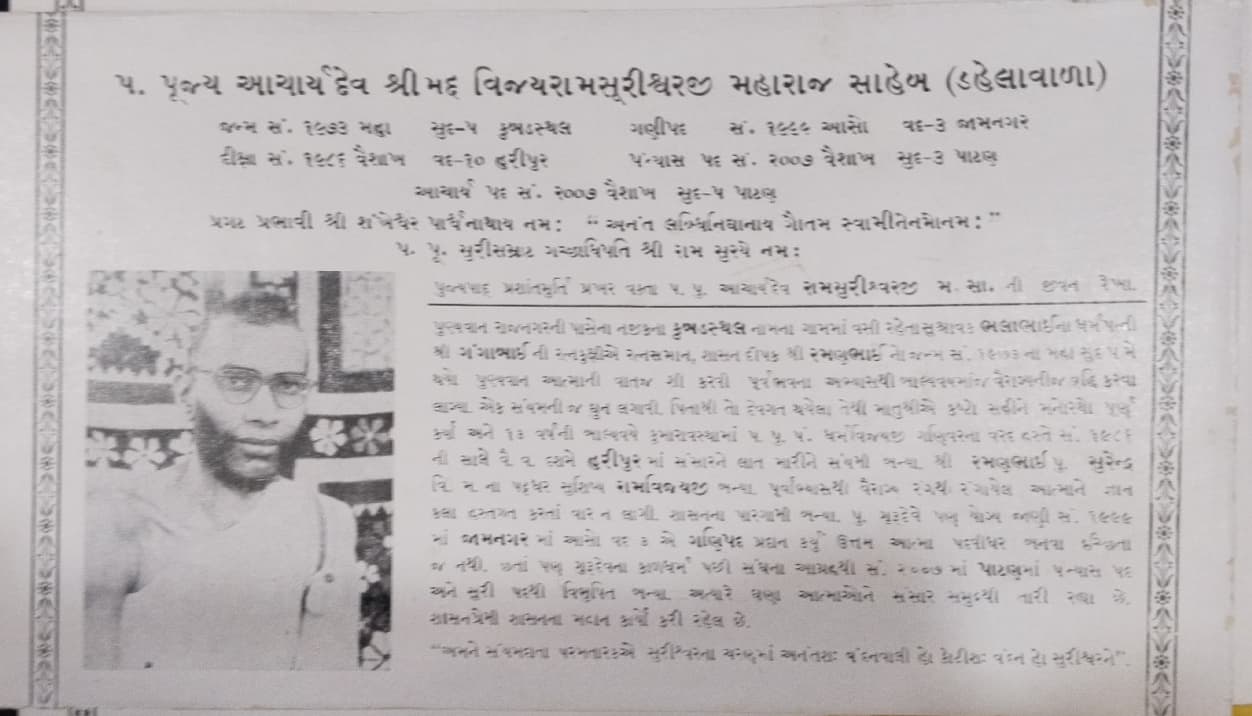 પ. પૂજ્ય આચાર્યદેવ શ્રીમદ્ વિજયરામસૂરીશ્વરજી મહારાજ સાહેબ (ડહેલાવાળા)
જન્મ સં. ૧૯૭૩ મહા સુદ-૫ કુબડસ્થલ ગણીપદ સં. ૧૯૯૯ આસો વદ-૩ જામનગર
દીક્ષા સં. ૧૯૮૬ વૈશાખ વદ-૧૦ હરીપુર પંન્યાસ પદ સં. ૨૦૦૭ વૈશાખ સુદ-૩ પાટણ
આચાર્ય પદ સં. ૨૦૦૭ વૈશાખ સુદ-૫ પાટણ
પ્રગટ પ્રભાવી શ્રી શંખેશ્વર પાર્શ્વનાથાય નમઃ “અનંત લબ્ધિનિધાનાય ગૌતમ સ્વામીનેનમોનમઃ”
પ. પૂ. સુરીસમ્રાટ ગચ્છાધિપતિ શ્રી રામ સુરયે નમઃ
પુજ્યપાદ પ્રશાંતમુર્તિ પ્રખર વક્તા પ. પૂ. આચાર્યદેવ રામસુરીશ્વરજી મ. સા. ની જીવન રેખા.
પુણ્યવાન રાજનગરની પાસેના નજીકના કુબડસ્થલ નામના ગામમાં વસી રહેતા સુશ્રાવક ભલાભાઈના ધર્મપત્ની
શ્રી ગંગાબાઈ ની રત્નકુક્ષીએ રત્નસમાન, શાસન દીપક શ્રી રમણભાઈ નો જન્મ સં. ૧૯૭૩ ના મહા સુદ ૫ મે
થયો પુણ્યવાન આત્માની વાતજ શી કરવી પૂર્વભવના અભ્યાસથી બાલ્યવયમાંજ વૈરાગ્યનીજ વૃદ્ધિ કરવા
લાગ્યા. એક સંયમની જ ધુન લગાવી. પિતાશ્રી તો દેવગત થયેલા તેથી માતુશ્રીએ કષ્ટો સહીને મનોરથો પૂર્ણ
કર્યા અને ૧૩ વર્ષની બાલ્યવયે કુમારાવસ્થામાં પ. પૂ. પં. ધર્મવિજયજી ગણિવરના વરદ હસ્તે સં. ૧૯૮૬
ની સાલે વૈ. વ. દશમે હરીપુર માં સંસારને લાત મારીને સંયમી બન્યા. શ્રી રમણભાઈ પૂ. સુરેન્દ્ર
વિ. મ. ના પટ્ટધર સુશિષ્ય રામવિજયજી બન્યા. પૂર્વાભ્યાસથી વૈરાગ્ય રંગથી રંગાયેલ આત્માને જ્ઞાન
કલા હસ્તગત કરતાં વાર ન લાગી. શાસનના પારગામી બન્યા. પૂ. ગુરૂદેવે પણ યોગ્ય જાણી સં. ૧૯૯૯
માં જામનગર માં આસો વદ ૩ એ ગણિપદ પ્રદાન કર્યું ઉત્તમ આત્મા પદવીધર બનવા ઈચ્છતા
જ નથી. છતાં પણ ગુરૂદેવના કાળધર્મ પછી સંઘના આગ્રહથી સં. ૨૦૦૭ માં પાટણમાં પંન્યાસ પદ
અને સુરી પદથી વિભુષિત બન્યા. અત્યારે ઘણા આત્માઓને સંસાર સમુદ્રથી તારી રહ્યા છે.
શાસનપ્રેમી શાસનના મહાન કાર્યો કરી રહેલ છે.
“અમને સંયમદાતા પરમતારકએ સુરીશ્વરના ચરણમાં અનંતશઃ વંદનાવલી હો કોટીશઃ વંદન હો સુરીશ્વરને”.